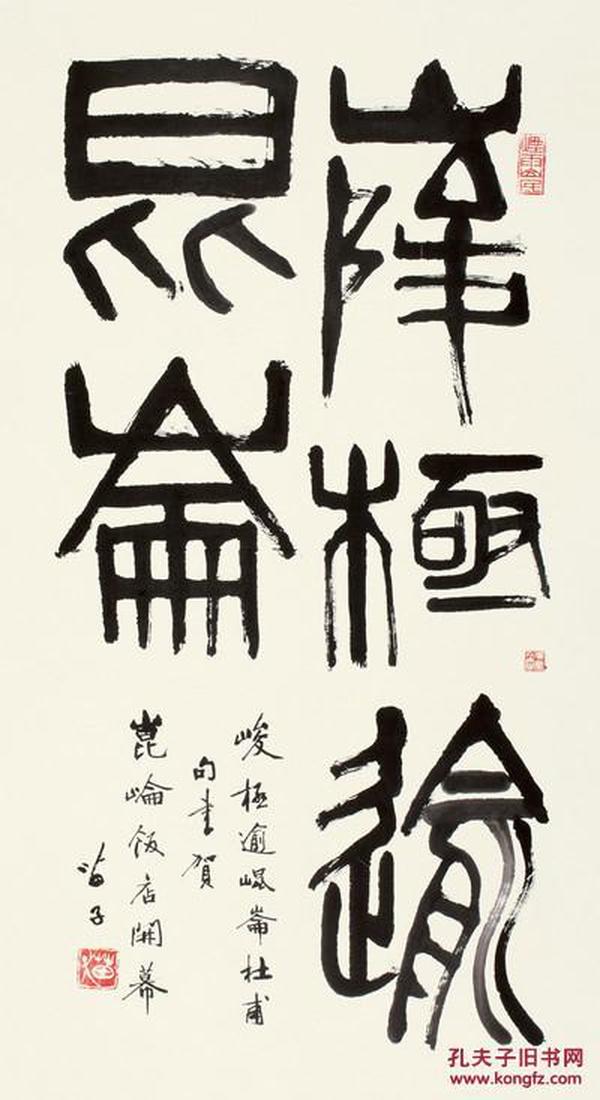 峻極逾
昆崙
峻極逾崐崙杜甫
句書賀
崑崘飯店開幕
苗子
孔夫子旧书网
www.kongfz.com